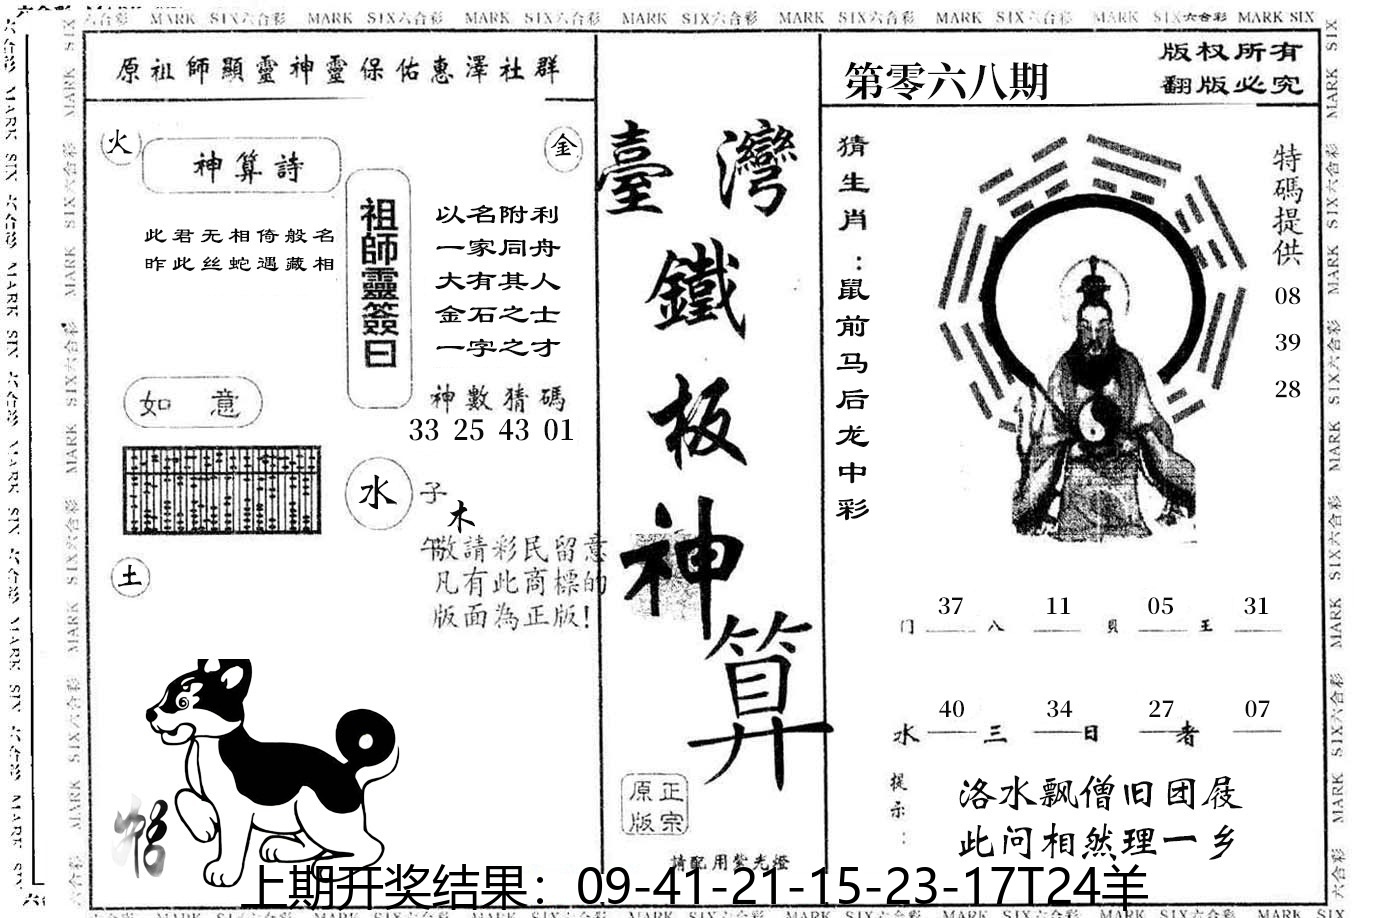 MARK SIX六合彩 MARK SIX六合彩 MARK SIX六合彩 MARK SIX六合彩 MARK SIX六合彩 MARK SIX六合彩 MARK SIX六合彩 MARK SIX
原祖師顯靈神靈保佑惠澤社群
火
金
神算詩
此君无相倚般名
昨此丝蛇遇藏相
祖師靈簽曰
以名附利
一家同舟
大有其人
金石之士
一字之才
神數猜碼
33 25 43 01
如意
水
子
木
午
土
敬請彩民留意
凡有此商標的
版面為正版!
臺灣
鐵
板
神
算
正宗
原版
請配用紫光燈
第零六八期
版权所有
翻版必究
猜生肖:鼠前马后龙中彩
特碼提供
08
39
28
37 11 05 31
门 八 貝 王
40 34 27 07
水 三 日 者
提示:
洛水飘僧旧团屐
此问相然理一乡
上期开奖结果：09-41-21-15-23-17T24羊